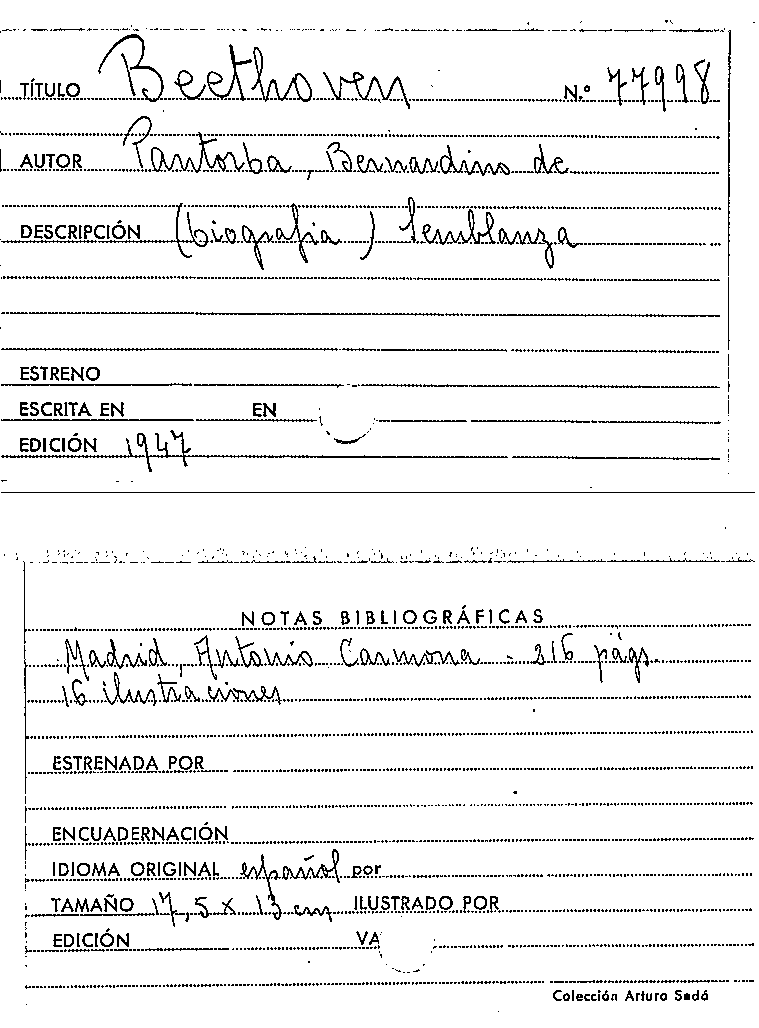 TÍTULO Beethoven N.º 77998
AUTOR Pantorba, Bernardino de
DESCRIPCIÓN (biografia) Semblanza
ESTRENO
ESCRITA EN EN
EDICIÓN 1947
NOTAS BIBLIOGRÁFICAS
Madrid, Antonio Carmona - 216 págs.
16 ilustraciones
ESTRENADA POR
ENCUADERNACIÓN
IDIOMA ORIGINAL español por
TAMAÑO 17,5 x 13 cm ILUSTRADO POR
EDICIÓN VA
Colección Arturo Sedó